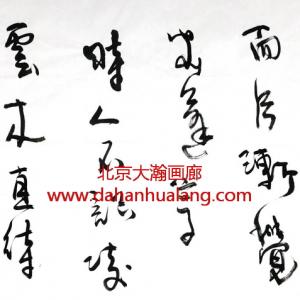 而今漸覺
出蓬蒿
時人不識凌
雲木直待
北京大瀚画廊
www.dahanhualang.com